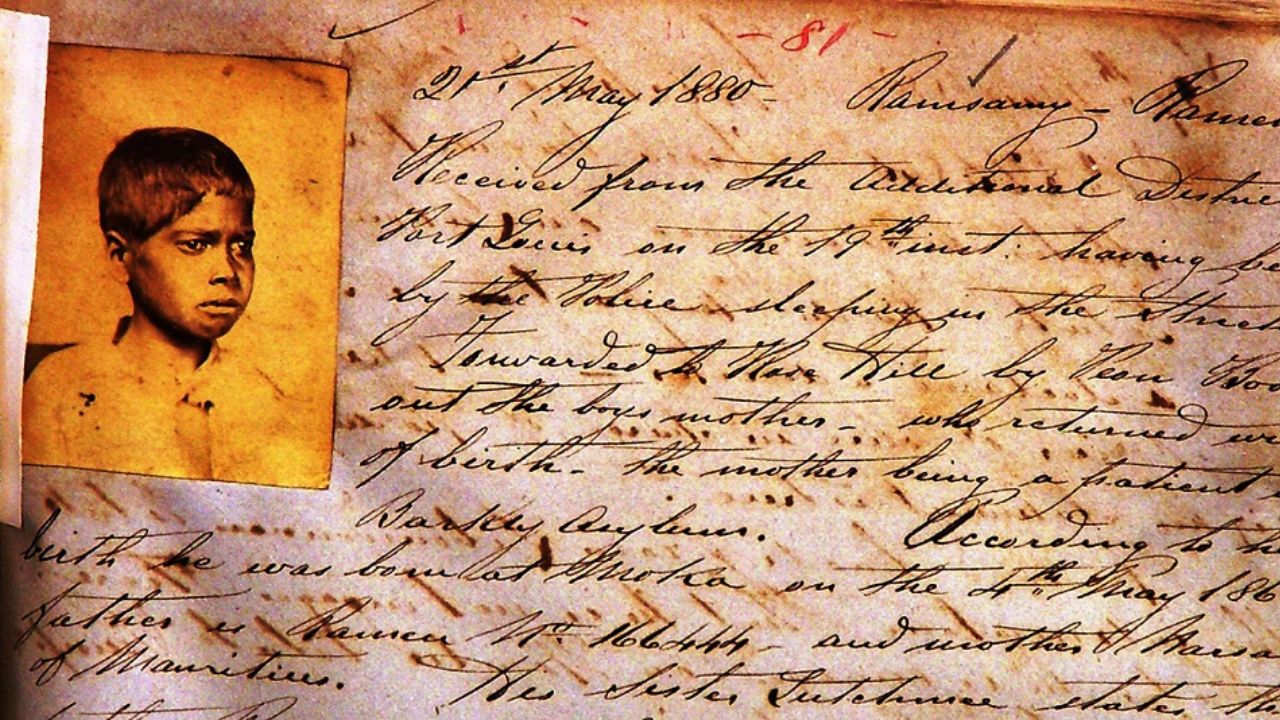 - 81 -
21st. May 1880 - Ramsamy - Ramen
Received from the Additional Distric
Port Louis on the 19th inst: having be
by the Police sleeping in the Street
Forwarded to Hill by Peon
out the boys mother - who returned wi
of birth - the mother being a patient
Barkly Asylum. According to h
birth he was born at Moka on the 4th May 186
father is Ramen No 166444 - and mother
of Mauritius. His Sister Lutchmee states th